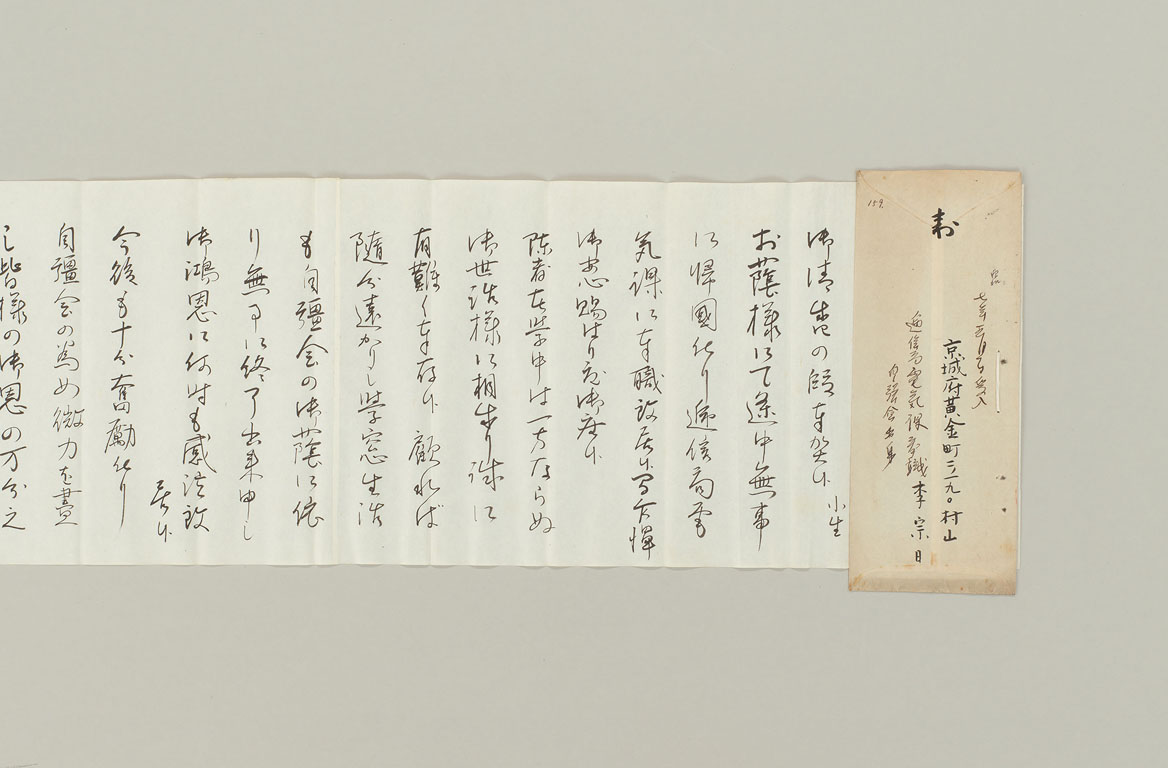 159.
寿
京城府黄金町三ノ九〇村山
逓信局電気課奉職 李宗日
自彊会出身
御清書の段奉賀候 小生
お蔭様にて途中無事
に帰国仕り逓信局電
気課に奉職致居候間乍憚
御安心賜はり度御座候
陳者在学中は一方ならぬ
御世話様に相成り誠に
有難く奉存候 顧れば
随分遠かりし学窓生活
も自彊会の御蔭に依
り無事に終了出来申し
御鴻恩に何時も感泣致
居候
今後も十分奮励仕り
自彊会の為め微力を尽
し皆様の御恩の万分之